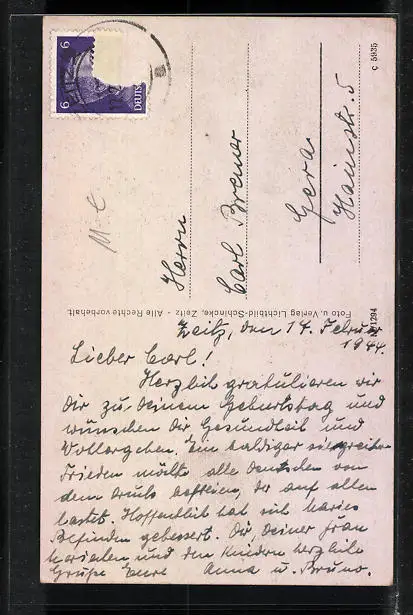 6
6
DEUTSCH
c 5935
M-E
Herrn
Carl Bremer
Gera
Hainstr. 5
Foto u. Verlag Lichtbild-Schincke, Zeitz - Alle Rechte vorbehalt.
1294
Zeitz, den 14. Februar
1944.
Lieber Carl!
Herzlich gratulieren wir
Dir zu Deinem Geburtstag und
wünschen Dir Gesundheit und
Wollergehen. Ein baldiger siegreicher
Frieden möchte alle Deutschen von
dem Druck befreien, der auf allen
lastet. Hoffentlich hat sich Maries
Befinden gebessert. Dir, Deiner Frau
Mariechen und den Kindern herzliche
Grüße Eure Anna u. Bruno.